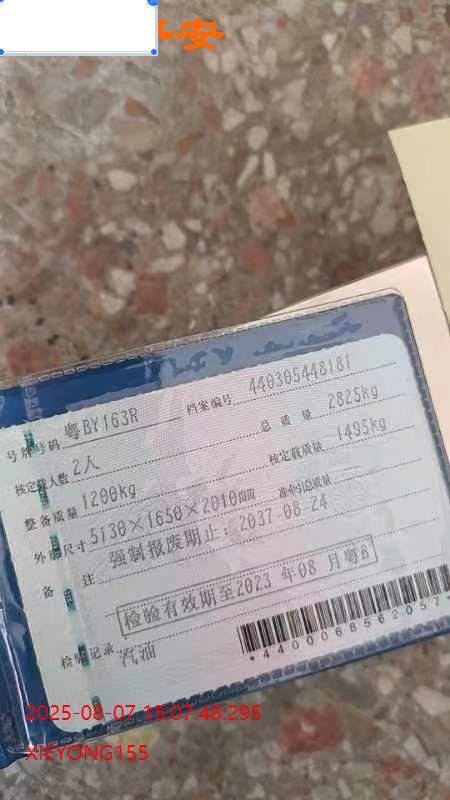 平安
号牌号码 粤BY163R 档案编号 440305448181
核定载人数 2人 总质量 2825kg
整备质量 1200kg 核定载质量 1495kg
外廓尺寸 5130×1650×2010mm 准牵引总质量
备注 强制报废期止:2037-08-24
检验有效期至2023年08月粤B
检验记录 汽油
*4400068562057*
2025-08-07 15:07:48.295
XIEYONG155